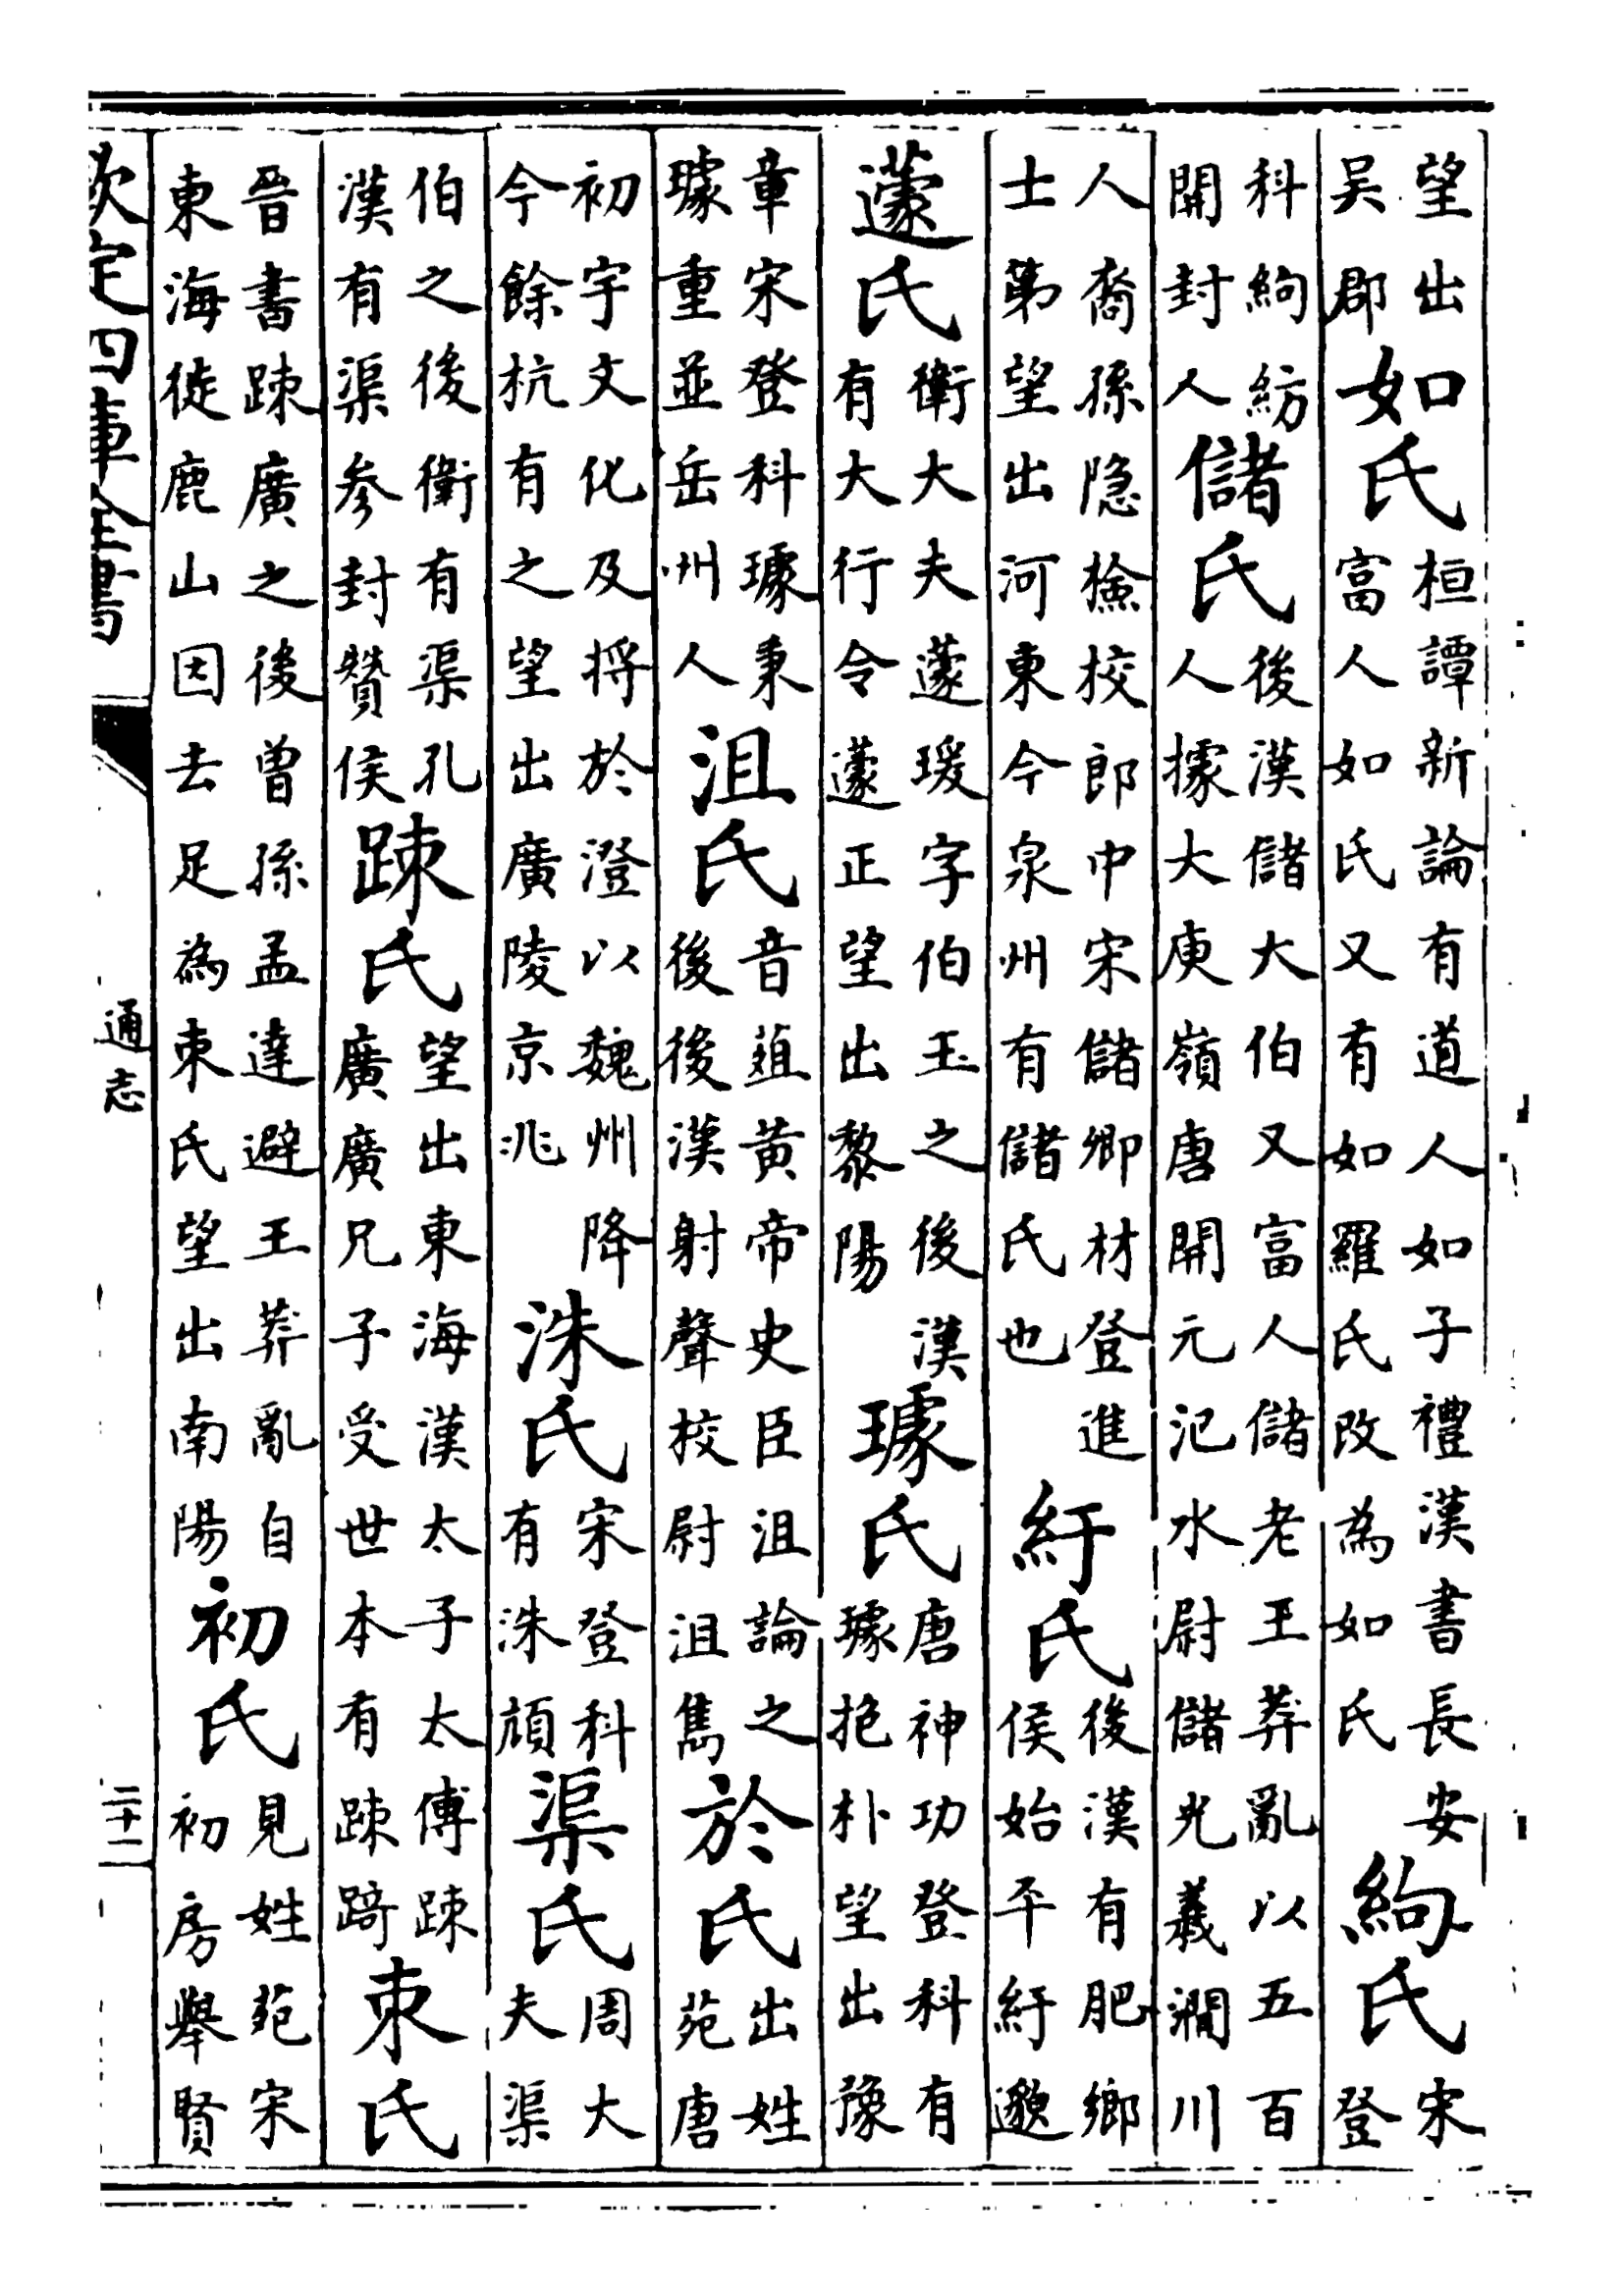 望出
吴郡
如氏
桓譚新論有道人如子禮漢書長安
富人如氏又有如羅氏改為如氏
絇氏
宋
登
科絇紡
開封人
儲氏
後漢儲大伯又富人儲老王莽亂以五百
人據大庾嶺唐開元汜水尉儲光羲澗川
人裔孫隐檢校郎中宋儲卿材登進
士第望出河東今泉州有儲氏也
紆氏
後漢有肥鄉
侯始平紆邈
蘧氏
衛大夫蘧瑗字伯玉之後漢
有大行令蘧正望出黎陽
璩氏
唐神功登科有
璩抱朴望出豫
章宋登科璩秉
璩重並岳州人
沮氏
音葅黄帝史臣沮論之
後後漢射聲校尉沮雋
於氏
出姓
苑唐
初宇文化及将於澄以魏州降
今餘杭有之望出廣陵京兆
洙氏
宋登科
有洙頏
渠氏
周大
夫渠
伯之後衛有渠孔
漢有渠参封贊侯
踈氏
望出東海漢太子太傅踈
廣廣兄子受世本有踈踦
束氏
晉書踈廣之後曽孫孟達避王莽亂自
東海徙鹿山因去足為束氏望出南陽
初氏
見姓苑宋
初房舉賢
欽定四庫全書
通志
二十一